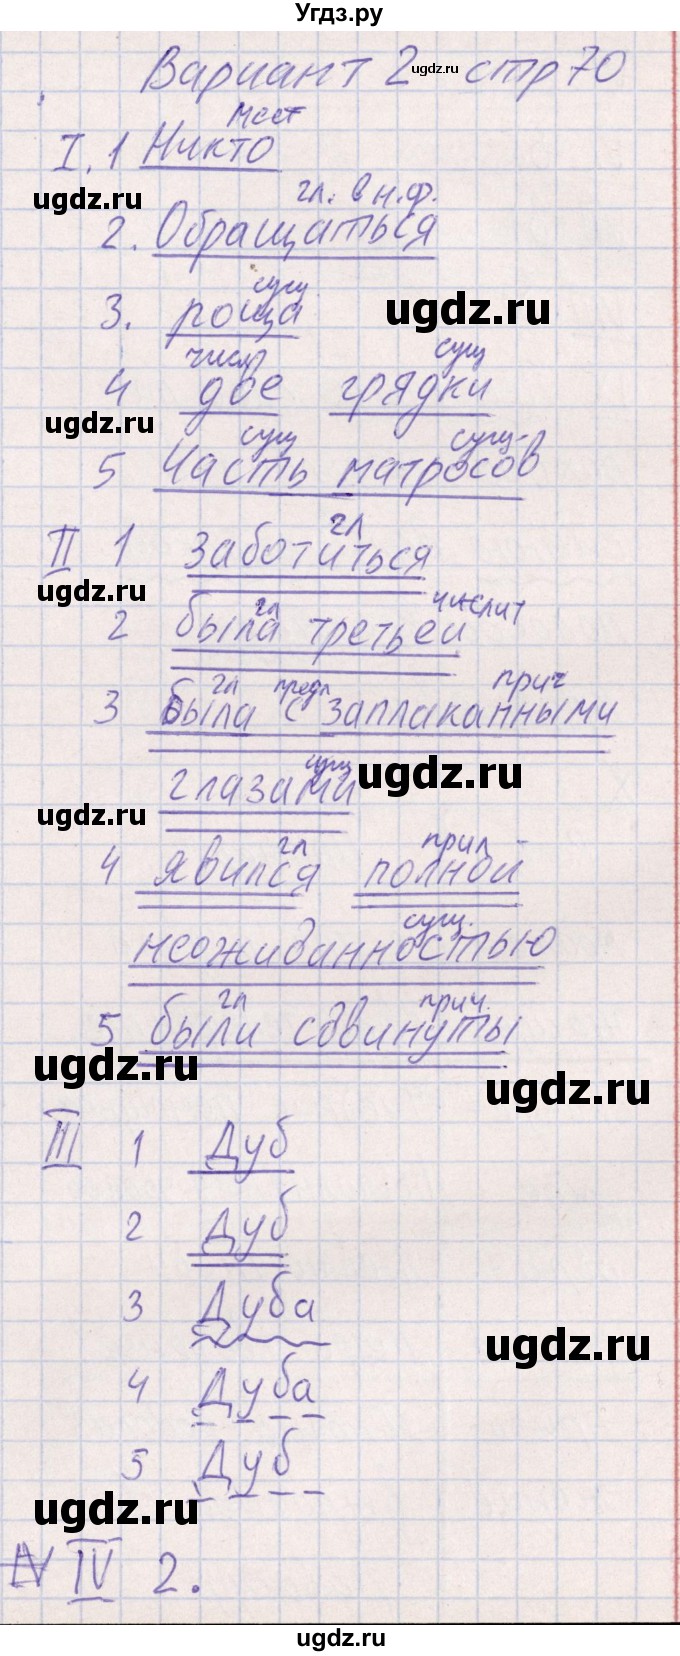 Угдз.ру
Вариант 2 стр 70
ugdz.ru
мест
I. 1 Никто
ugdz.ru
гл. в н.ф.
2. Обращаться
сущ
3. роща
ugdz.ru
числ сущ
4 две грядки
ugdz.ru
сущ сущ
5 Часть матросов
гл
II 1 заботиться
ugdz.ru
гл числит
2 была третьей
гл предл прич
3 была с заплаканными
сущ
глазами
ugdz.ru
ugdz.ru
гл прил
4 явился полной
сущ.
неожиданностью
гл прич.
5 были сдвинуты
ugdz.ru
ugdz.ru
III 1 Дуб
2 Дуб
3 Дуба
ugdz.ru
4 Дуба
5 Дуб
ugdz.ru
IV 2.
ugdz.ru